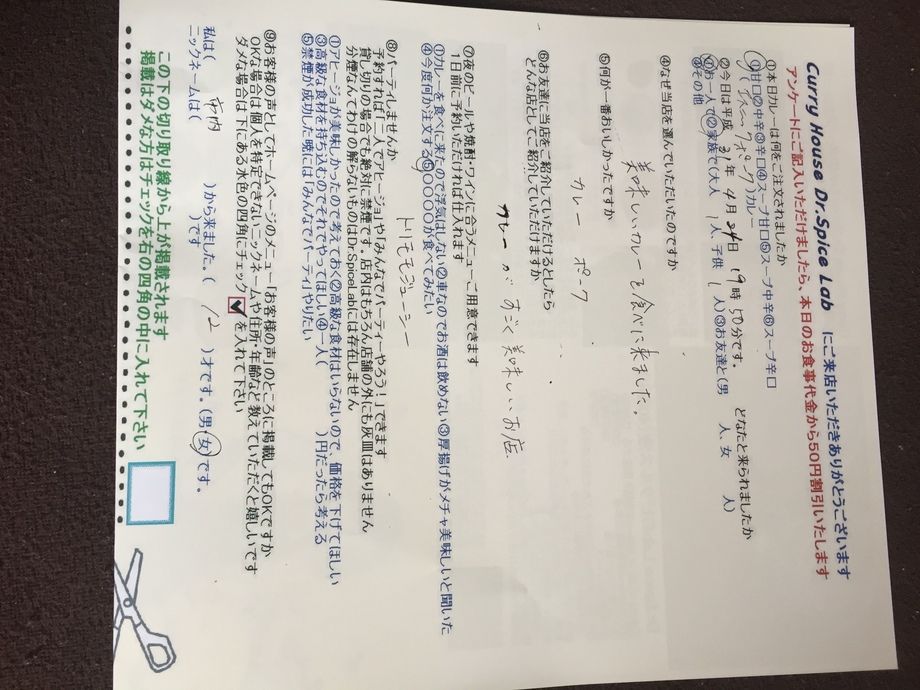 Curry House Dr.Spice Lab にご来店いただきありがとうございます
アンケートにご記入いただけましたら、本日のお食事代金から50円割引いたします
①本日カレーは何をご注文されましたか
①甘口②中辛③辛口④スープ甘口⑤スープ中辛⑥スープ辛口
ポーク)カレー
②今日は平成 31年 4月 24日 19時 50分です。 どなたと来られましたか
①お一人で②家族で(大人 1人、子供 1人)③お友達と(男 人、女 人)
④その他
④なぜ当店を選んでいただいたのですか
美味しいカレーを食べに来ました。
⑤何が一番おいしかったですか
カレー ポーク
⑥お友達に当店をご紹介していただけるとしたら
どんな店としてご紹介していただけますか
カレーがすごく美味しいお店
⑦夜のビールや焼酎・ワインに合うメニューご用意できます
1日前に予約いただければ仕入れます
①カレーを食べに来たので浮気はしない②車なのでお酒は飲めない③厚揚げがメチャ美味しいと聞いた
④今度何か注文する⑤〇〇〇〇が食べてみたい
トリモモジューシー
⑧パーティしませんか
予約すれば「二人でアヒージョ」や「みんなでパーティーやろう！」できます
貸し切りの場合でも絶対に禁煙です。店内はもちろん店舗の外にも灰皿はありません
分煙なんてわけの解らないものはDr.SpiceLabには存在しません
①アヒージョが美味しかったので考えておく②高級な食材はいらないので、価格を下げてほしい
③高級な食材を持ち込むのでそれでやってほしい④一人( )円だったら考える
⑤禁煙が成功した暁には「みんなでパーティ」やりたい
⑨お客様の声としてホームページのメニュー「お客様の声」のところに掲載してもOKですか
OKな場合は個人を特定できないニックネームや住所・年齢など教えていただくと嬉しいです
ダメな場合は下にある水色の四角にチェック を入れて下さい
私は( 内 )から来ました。( 12 )才です。(男・女)です。
ニックネームは( )です
この下の切り取り線から上が掲載されます
掲載はダメな方はチェックを右の四角の中に入れて下さい